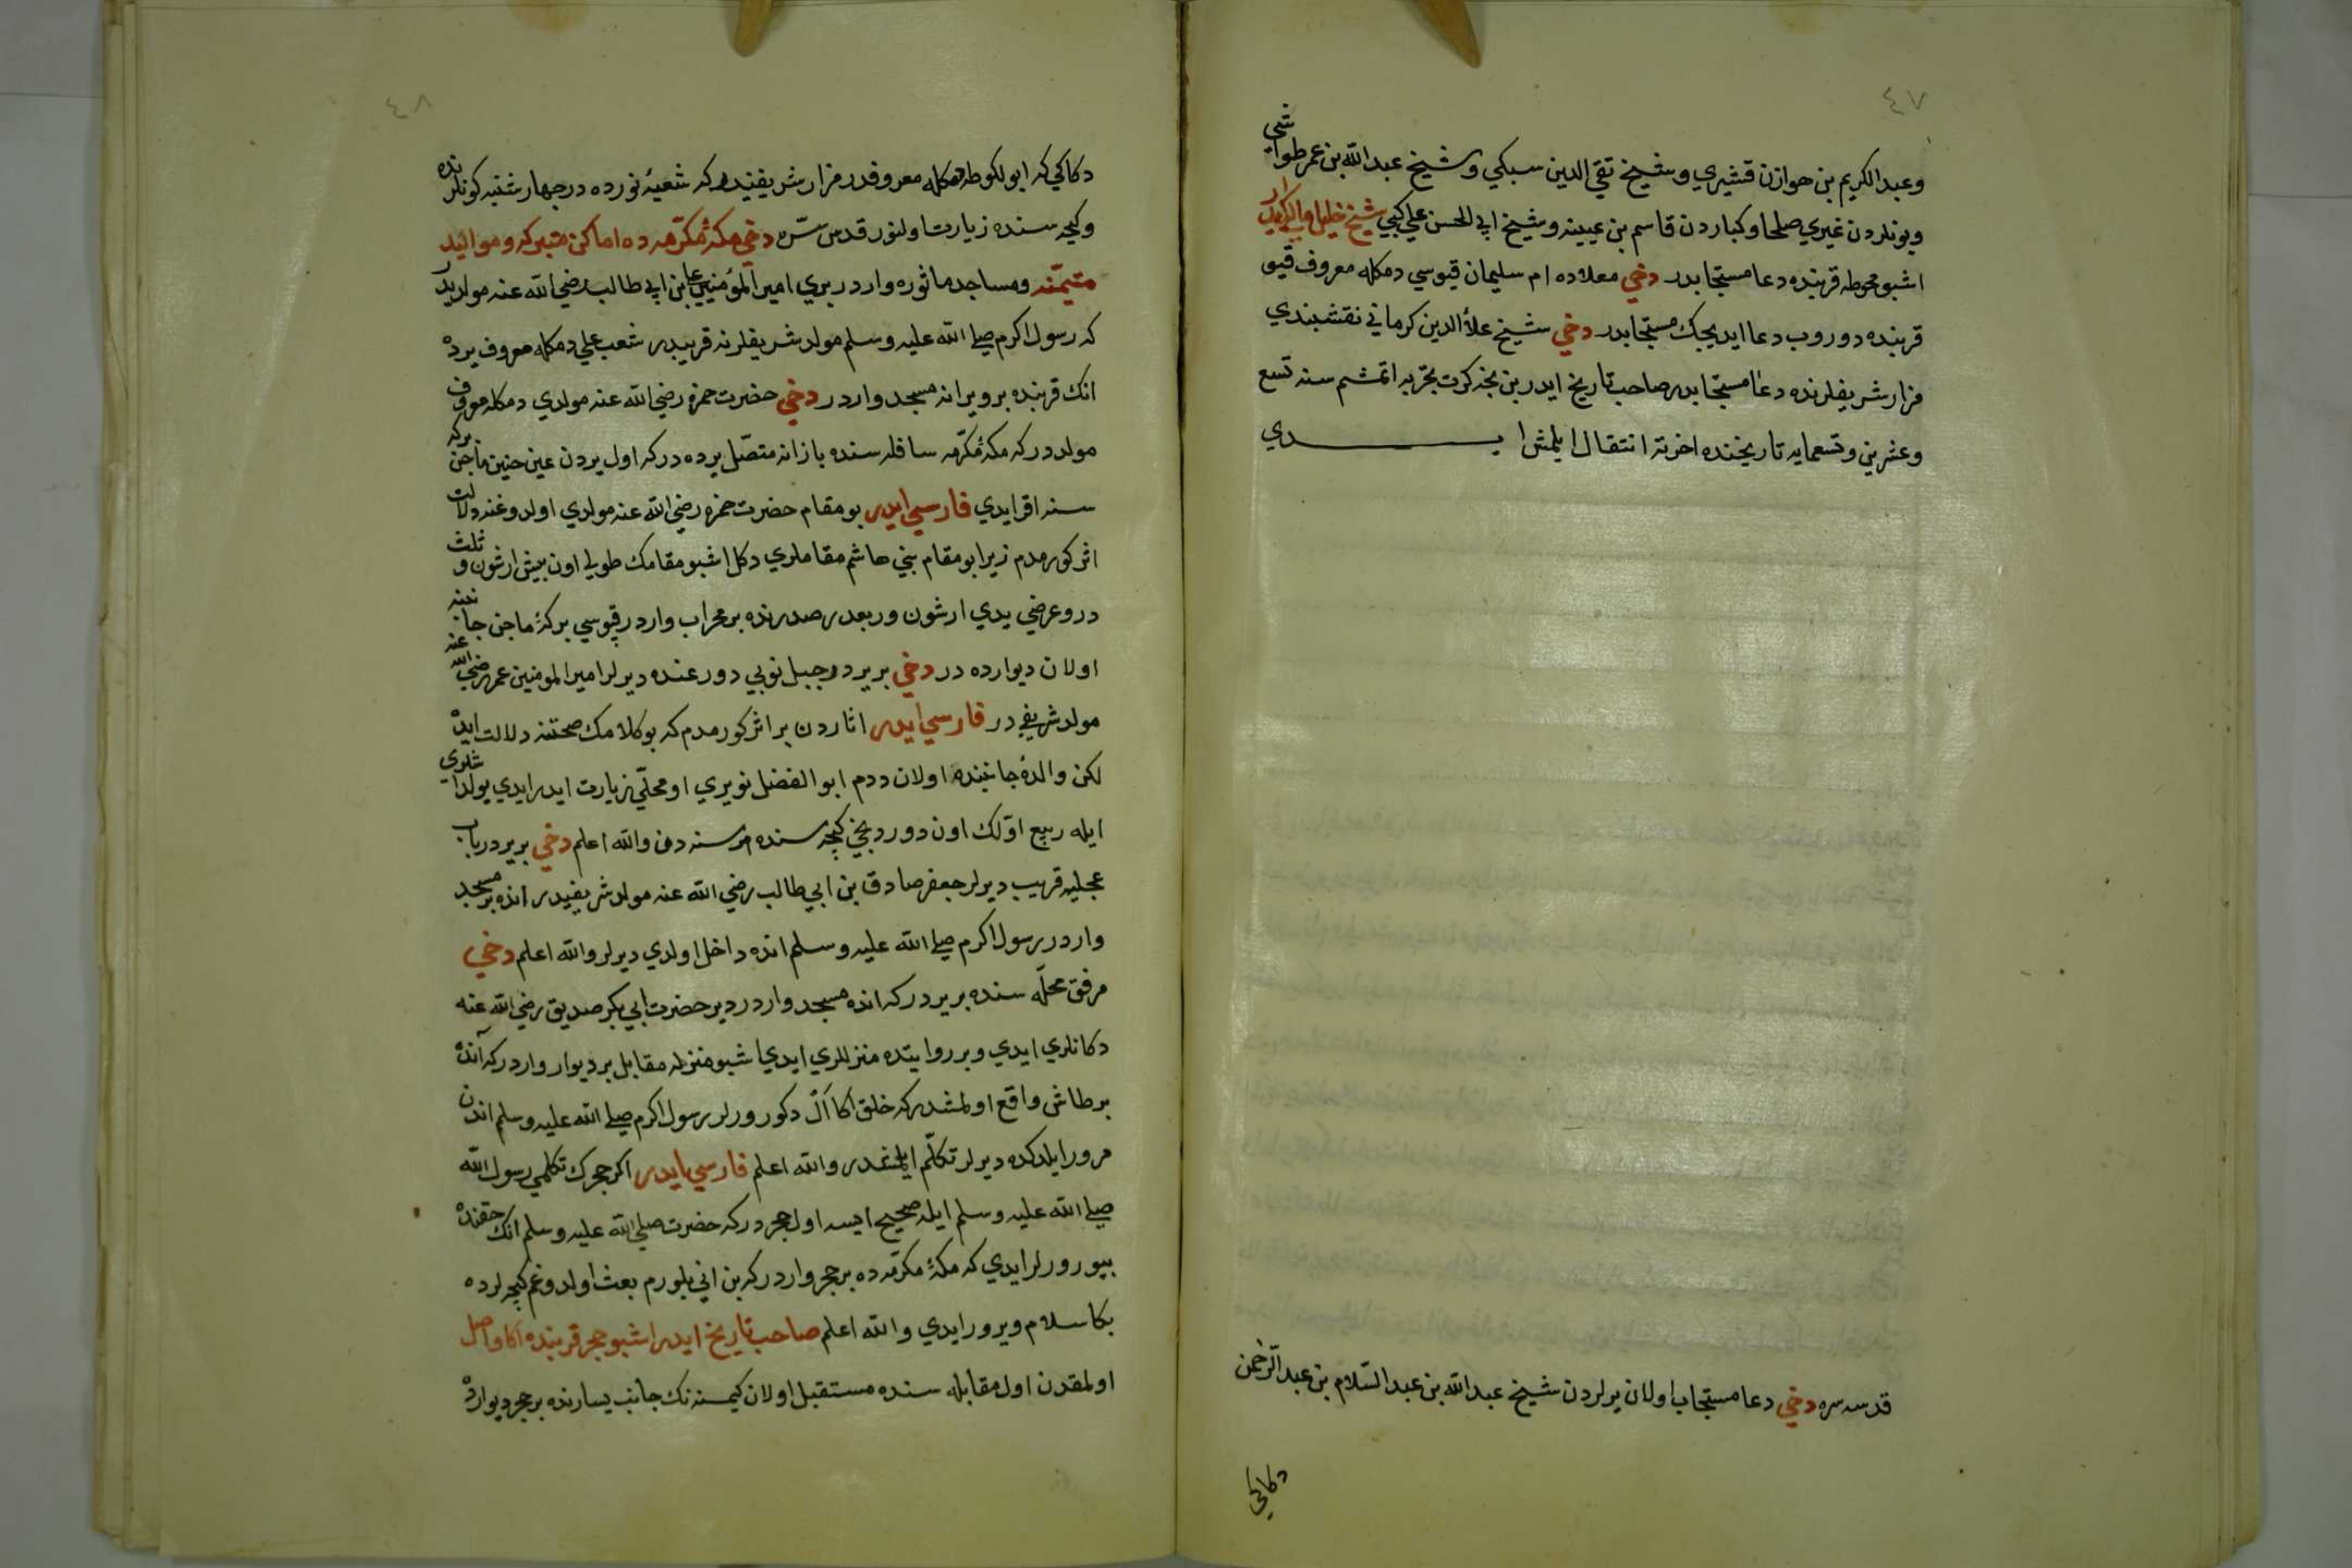 ٤٧
وعبد الكريم بن هوازن قشيري وشيخ تقي الدين سبكي وشيخ عبد الله بن عمر طواشي
وبونلردن غيري صلحا وكباردن قاسم بن عيينه وشيخ ابي الحسن علي كبي شيخ خليل مالكي ايدر
اشبو محوطه قربنده دعا مستجابدر دخي معلاده ام سليمان قپوسي دمكله معروف قپو
قربنده دوروب دعا ايديجك مستجابدر دخي شيخ علأ الدين كرماني نقشبندي
مزار شريفلرنده دعا مستجابدر صاحب تاريخ ايدر بن نجه كرت تجربه اتمشم سنه تسع
وعشرين وتسعمايه تاريخنده اخرته انتقال ايلمش ايدي
قدس سره دخي دعا مستجاب اولان يرلردن شيخ عبد الله بن عبد السّلام بن عبد الرّحمن
دكاكي
٤٨
دكاكي كه ابو لكوط دمكله معروفدر مزار شريفيندر كه شعبۀ نورده در چهارشنبه كونلرنده
وكيجه سنده زيارت اولنور قدس سرّه دخي مكۀ مكرّمه ده اماكن متبركه ومواليد
متيمّنه ومساجد مأثوره واردر بري امير المؤمنين علي بن ابي طالب رضي الله عنه مولديدر
كه رسول اكرم صلى الله عليه وسلم مولد شريفلرنه قريبدر شعب علي دمكله معروف يرده
انك قربنده بر ويرانه مسجد واردر دخي حضرت حمزه رضي الله عنه مولدي دمكله معروف
مولددر كه مكۀ مكرّمه سافله سنده بازانه متصّل يرده در كه اول يردن عين حنين بركۀ ماجن
سنه اقر ايدي فارسي ايدر بو مقام حضرت حمزه رضي الله عنه مولدي اولدوغنه دلالت
اثر كورمدم زيرا بو مقام بني هاشم مقاملري دكل اشبو مقامك طولي اون بيش ارشون وثلث
در وعرضي يدي ارشون وربعدر صدرنده بر محراب واردر قپوسي بركۀ ماجن جانبنه
اولان ديوارده در دخي بر يردر جبل نوبي دور عنده ديرلر امير المومنين عمر رضي الله عنه
مولد شريفي در فارسي ايدر اثاردن بر اثر كورمدم كه بو كلامك صحتنه دلالت ايده
لكن والدۀ جانبنده اولان ددم ابو الفضل نويري او محلّي زيارت ايدر ايدي يولداشلري
ايله ربيع اوّلك اون دوردنجي كيجه سنده هر سنه دن والله اعلم دخي بر يردر باب
عجليه قريب ديرلر جعفر صادق بن ابي طالب رضي الله عنه مولد شريفيدر انده بر مسجد
واردر رسول اكرم صلى الله عليه وسلم انده داخل اولدي ديرلر والله اعلم دخي
مرفق محلّه سنده بر يردر كه انده مسجد واردر دير حضرت ابي بكر صديق رضي الله عنه
دكانلري ايدي وبر روايتده منزللري ايدي اشبو منزله مقابل بر ديوار واردر كه آنده
بر طاش واقع اولمشدر كه خلق اكا اَلْ دكورورلر رسول اكرم صلى الله عليه وسلم اندن
مرور ايلدكده ديرلر تكلّم ايلمشدر والله اعلم فارسي ايدر اكر حجرك تكلمي رسول الله
صلى الله عليه وسلم ايله صحيح ايسه اول حجردر كه حضرت صلى الله عليه وسلم انك حقنده
بيورورلر ايدي كه مكۀ مكرّمه ده بر حجر واردر كه بن اني بلورم بعث اولدوغم كيجه لرده
بكا سلام ويرور ايدي والله اعلم صاحب تاريخ ايدر اشبو حجر قربنده اكا واصل
اولمقدن اول مقابله سنده مستقبل اولان كيمسنه نك جانب يسارنده بر حجر ديوارده